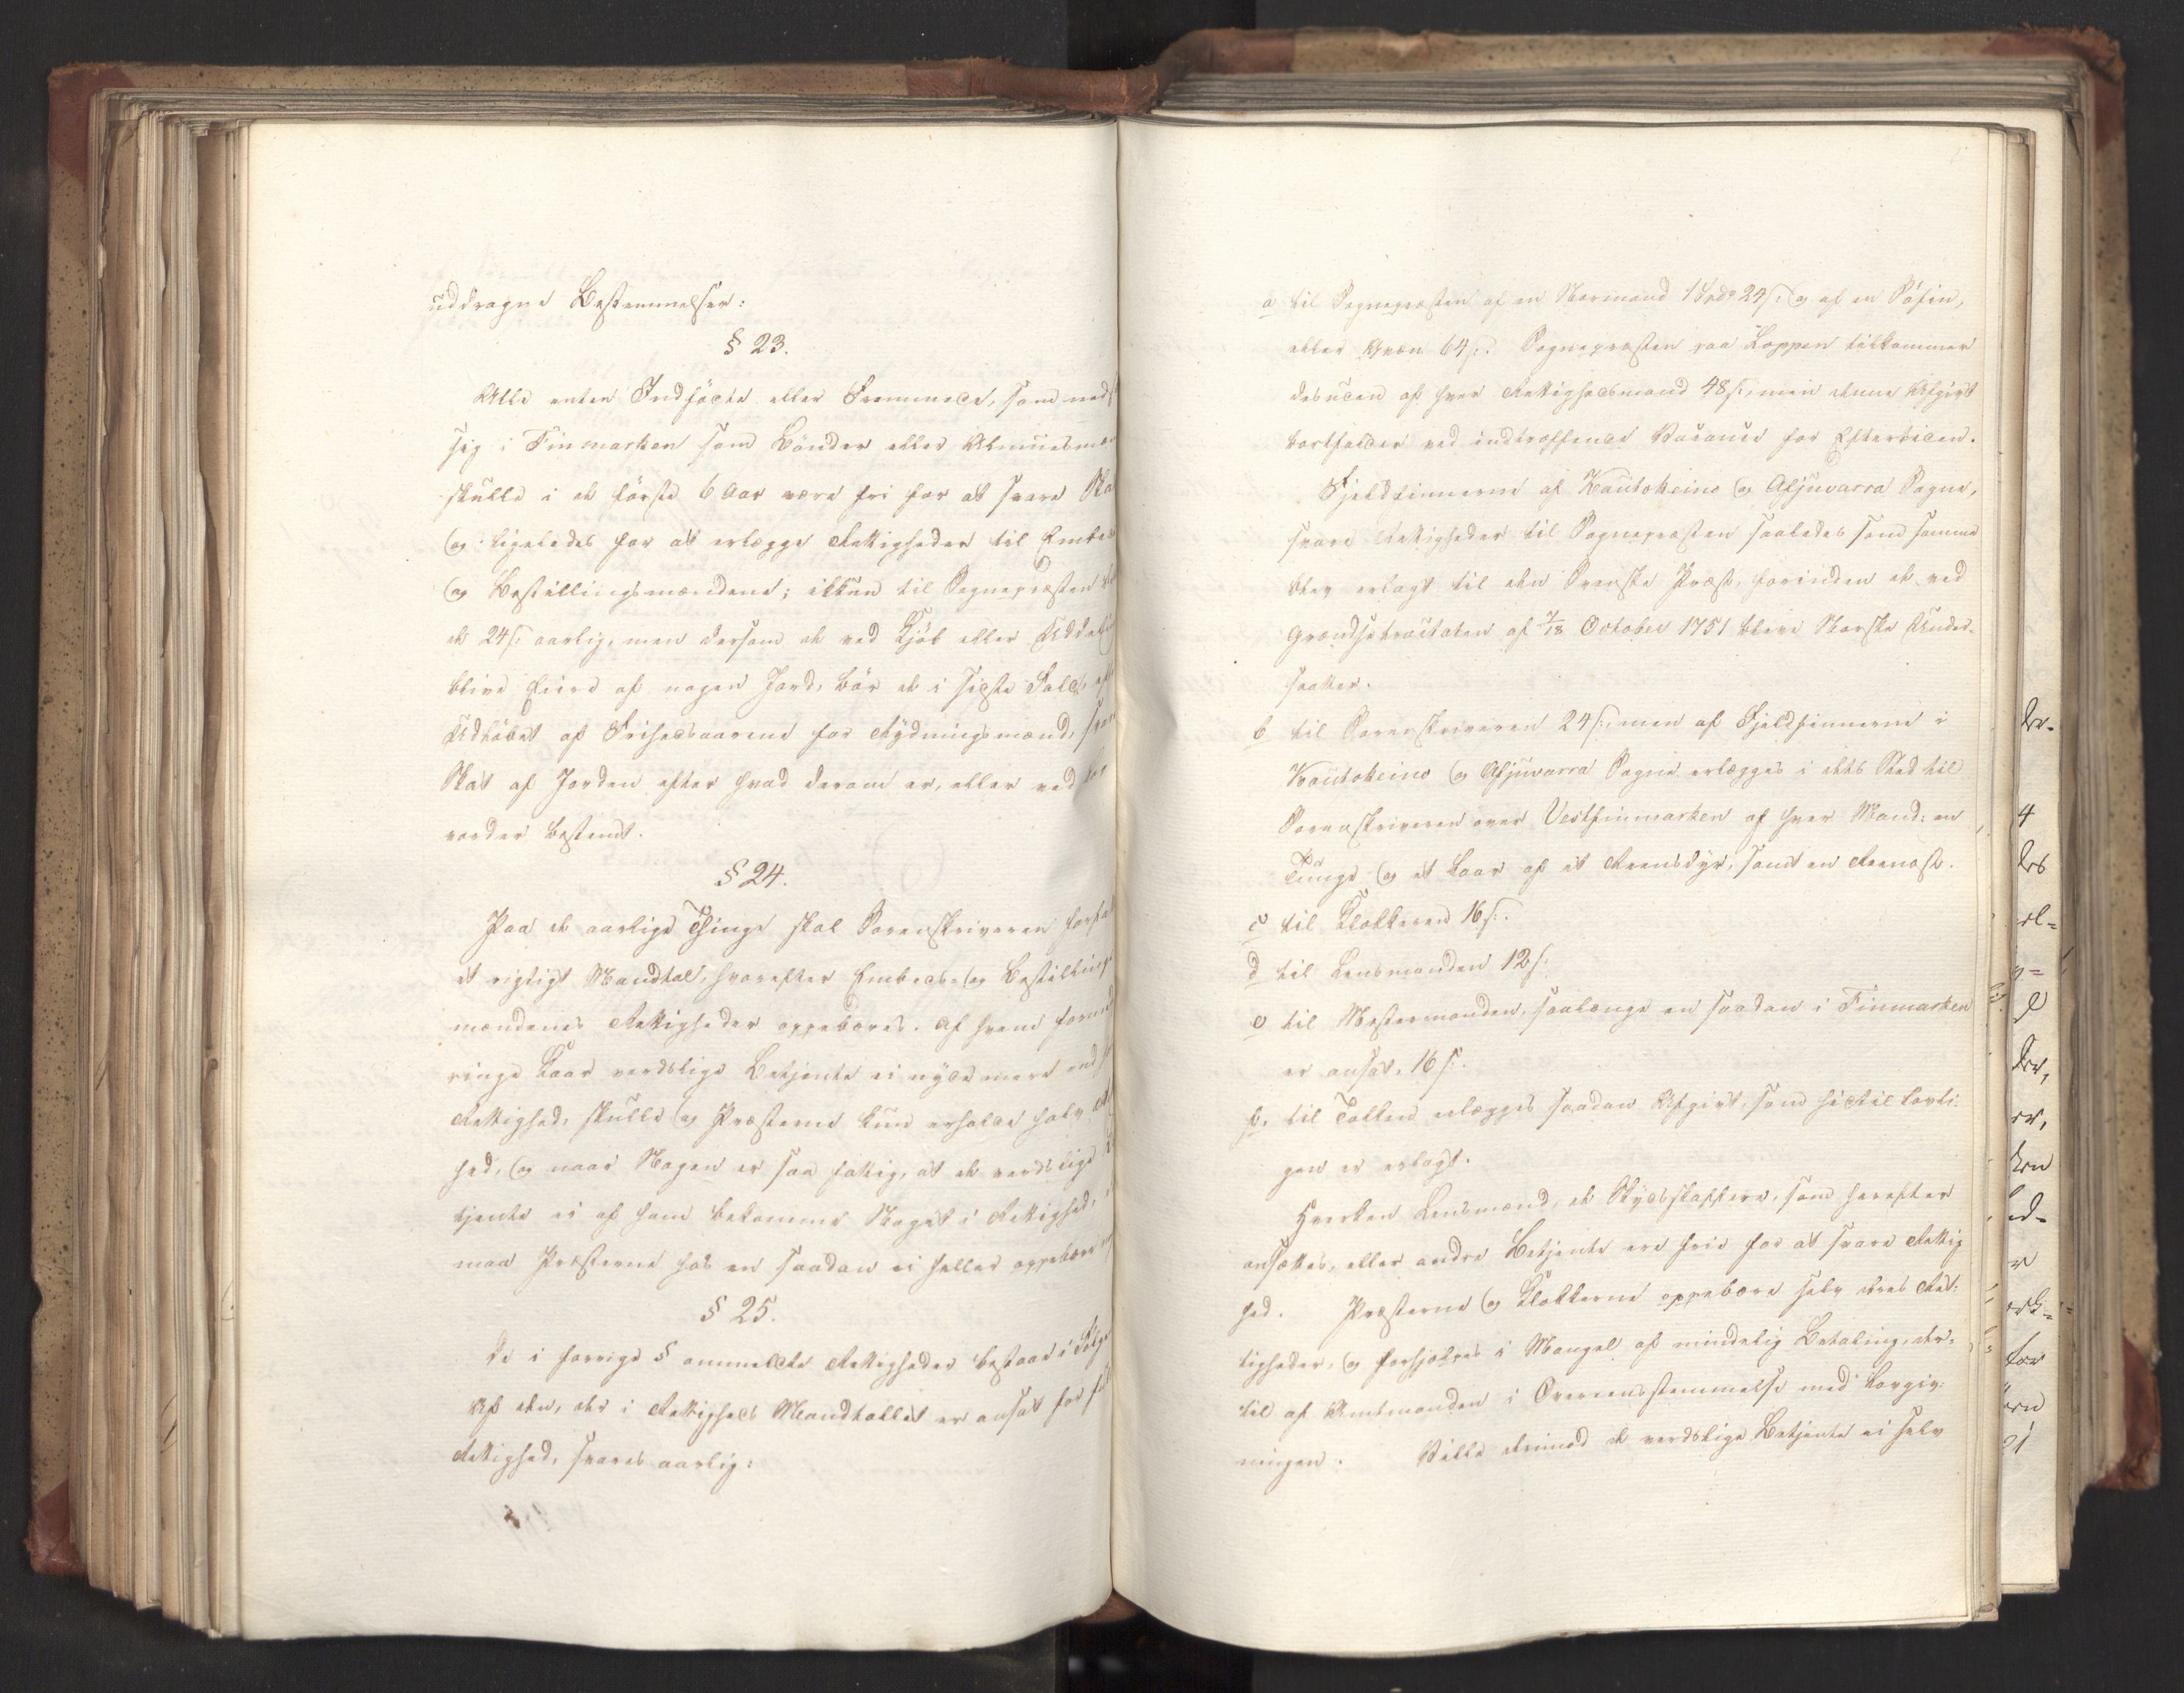 uddragne Bestemmelser:
§ 23.
Alle enten Indfödte eller Fremmede, som ned
sig i Finmarken som Bönder eller Almuesmæn
skulle i de förste 6 Aar være fri for at svare Ska
og ligeledes for at erlægge Rettigheder til Embeds
og Bestillingsmændene; ikkun til Sognepræsten
de 24 s: aarlig, men dersom de ved Kjöb eller Uddeling
blive Eiere af nogen Jord, bör de i sidste Fald, efter
Udlöbet af Frihedsaarene for Rydningsmænd, svare
Skat af Jorden efter hvad derom er, eller ved Lov
vorder bestemt.
§ 24.
Paa de aarlige Thinge skal Sorenskriveren forfat
et rigtigt Mandtal, hvorefter Embeds- og Bestillings
mændenes Rettigheder oppebæres. Af hvem formed
ringe Kaar verdslige Betjente ei nyde mere end h
Rettighed, skulle og Præsterne kun erholde halv Ret
hed, og naar Nogen er saa fattig, at de verdslige
tjente ei af ham bekomme Noget i Rettighed,
maa Præsterne hos en saadan ei heller oppebære
§ 25.
De i forrige § ommeldte Rettigheder bestaae i Fölge
Af den, der i Rettigheds Mandtallet er ansat for fuld
Rettighed, svares aarlig:
a til Sognepræsten af en Normand 1 Spd 24 s: og af en Söfin,
eller Qvæn 64 s:. Sognepræsten paa Loppen tilkommer
desuden af hver Rettighedsmand 48 s:, men denne Afgivt
bortfalder ved indtræffende Vacance for Eftertiden.
Fjeldfinnerne af Kautokeino og Afjuvarra Sogne,
svare Rettigheder til Sognepræsten saaledes som samme
blev erlagt til den Svenske Præst, forinden de ved
Grændsetractaten af 7/18 October 1751 bleve Norske Under-
saatter.
b til Sorenskriveren 24 s:, men af Fjeldfinnerne i
Kautokeino og Afjuvarra Sogne erlægges i dets Sted til
Sorenskriveren over Vestfinmarken af hver Mand: en
Tunge og et Laar af et Reensdyr, samt en Reenost.
c til Klokkeren 16 s:.
d til Lensmanden 12 s:
e til Mestermanden, saalænge en saadan i Finmarken
er ansat, 16 s:.
f. til Tolken erlægges saadan Afgivt, som hidtil lovli-
gen er erlagt.
Hverken Lensmænd, de Skydsskaffere, som herefter
ansættes, eller andre Betjente ere frie for at svare Rettig
hed. Præsterne og Klokkerne oppebære selv deres Ret-
tigheder, og forhjælpes i Mangel af mindelig Betaling, der-
til af Amtmanden i Overeensstemmelse med Lovgiv-
ningen. Ville derimod de verdslige Betjente ei selv